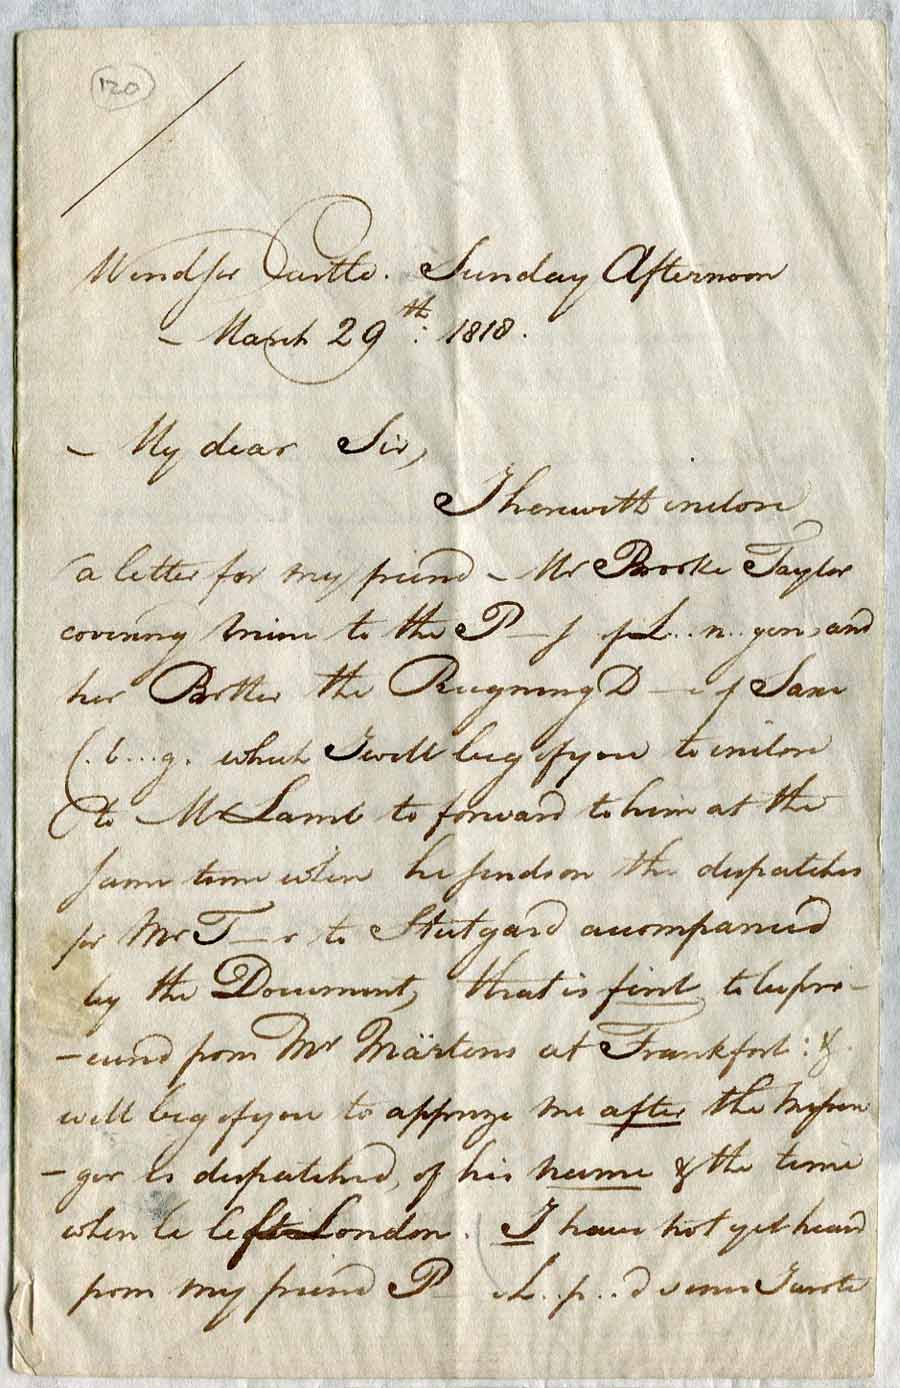 120
Windsor Castle. Sunday Afternoon
– March 29th: 1818.
– My dear Sir,
I herewith inclose
a letter for my friend – Mr Brooke Taylor
covering mine to the P—s of L..n..gen, and
her Brother the Reigning D—e of Saxe
C.b...g. which I will beg of you to inclose
to Mr Lamb to forward to him at the
same time when he sends on the dispatches
for Mr T—r to Stutgard accompanied
by the Document, that is first to be pro–
–cured from Mr Märtens at Frankfort: &
will beg of you to apprize me after the Messen
–ger is dispatched, of his name & the time
when he left London. I have not yet heard
from my friend P— L..p..d since I wrote